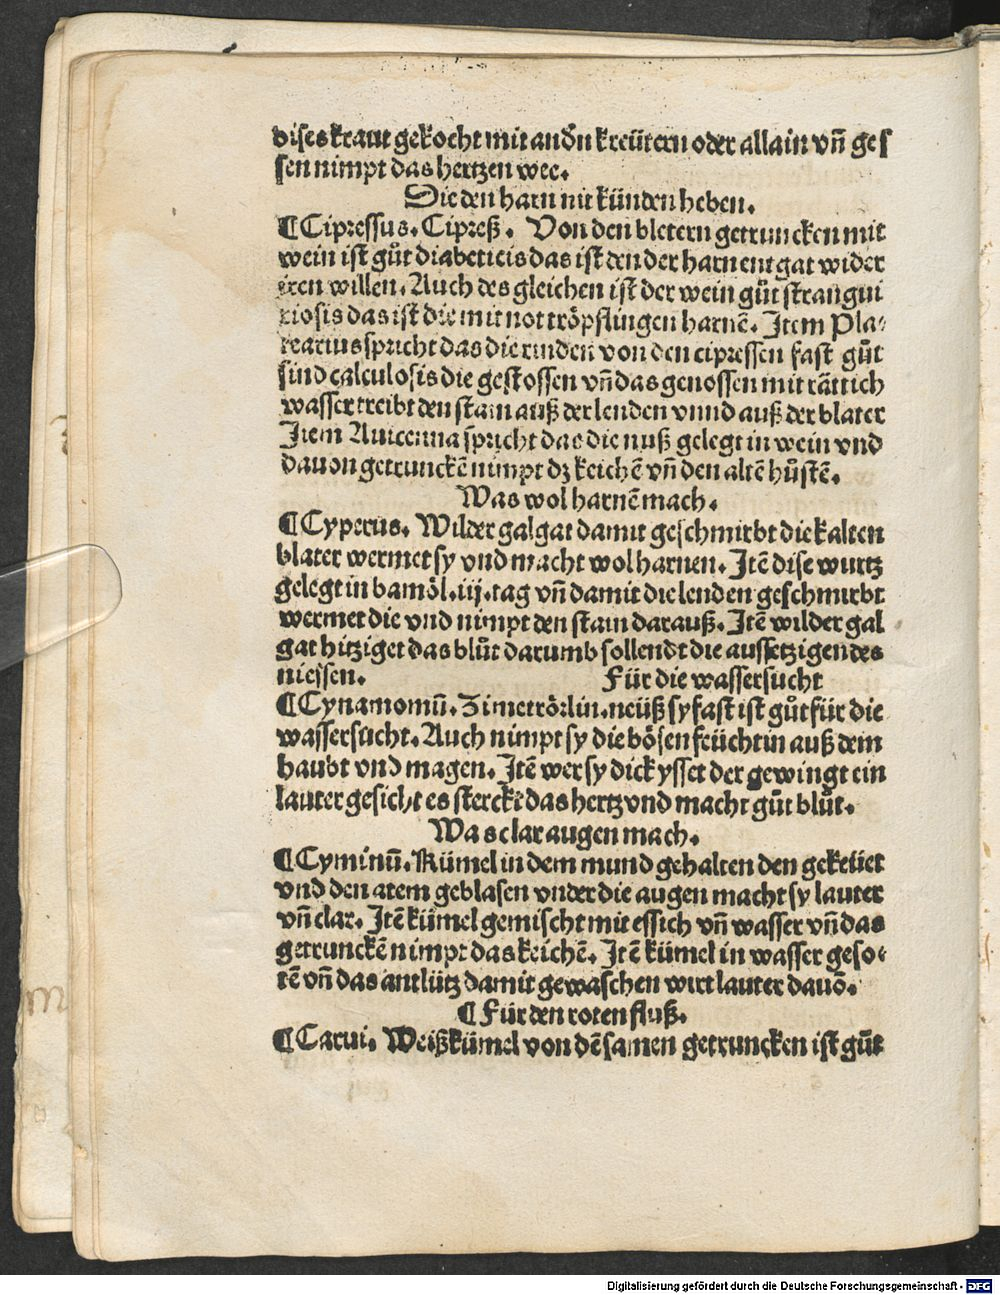 dises kraut gekocht mit andn̄ kreütern oder allain vn̄ ges
sen nimpt das hertzen wee.
Die den harn nit künden heben.
¶ Cipressus. Cipreß. Von den bletern getruncken mit
wein ist gůt diabeticis das ist den der harn entgat wider
iren willen. Auch des gleichen ist der wein gůt strangui
riosis das ist die mit not tröpflingen harnē. Item Pla⸗
tearius spricht das die rinden von den cipressen fast gůt
sind calculosis die gestossen vn̄ das genossen mit rättich
wasser treibt den stain auß der lenden vnnd auß der blater
Item Auicenna spricht das die nuß gelegt in wein vnd
dauon getrunckē nimpt dz keichē vn̄ den altē hůstē.
Was wol harnē mach.
¶ Cyperus. Wilder galgat damit geschmirbt die kalten
blater wermet sy vnd macht wol harnen. Itē dise wurtz
gelegt in bamöl .iij. tag vn̄ damit die lenden geschmirbt
wermet die vnd nimpt den stain darauß. Itē wilder gal
gat hitziget das blůt darumb sollendt die aussetzigen des
niessen. Für die wassersucht
¶ Cynamomū. Zimetrörlin. neüß sy fast ist gůt für die
wassersucht. Auch nimpt sy die bösen feüchtin auß dem
haubt vnd magen. Itē wer sy dick ysset der gewingt ein
lauter gesicht es sterckt das hertz vnd macht gůt blůt.
Was clar augen mach.
¶ Cyminū. Kümel in dem mund gehalten den gekeüet
vnd den atem geblasen vnder die augen macht sy lauter
vn̄ clar. Itē kümel gemischt mit essich vn̄ wasser vn̄ das
getrunckē nimpt das keichē. Itē kümel in wasser geso⸗
tē vn̄ das antlütz damit gewaschen wirt lauter dauō.
¶ Für den roten fluß.
¶ Carui. Weißkümel von dē samen getruncken ist gůt
Digitalisierung gefördert durch die Deutsche Forschungsgemeinschaft - DFG